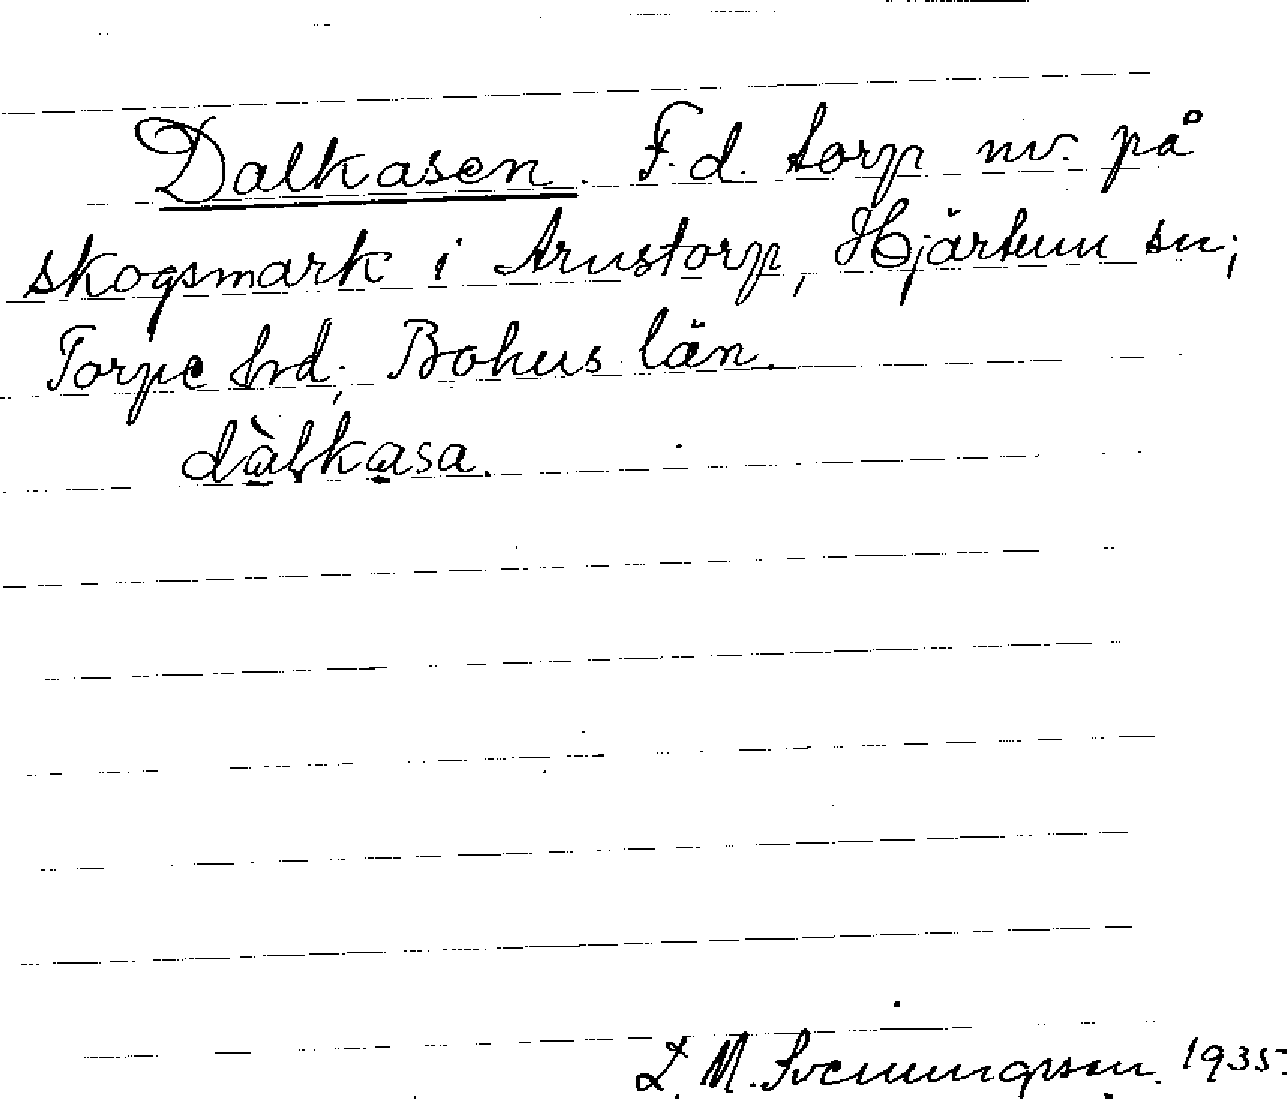 Dalkasen. F.d. torp nv. på
skogsmark i Arnstorp, Hjärtum sn;
Torpe hrd; Bohus län.
dàlkasa.
L. M. Svenungsson. 1935.